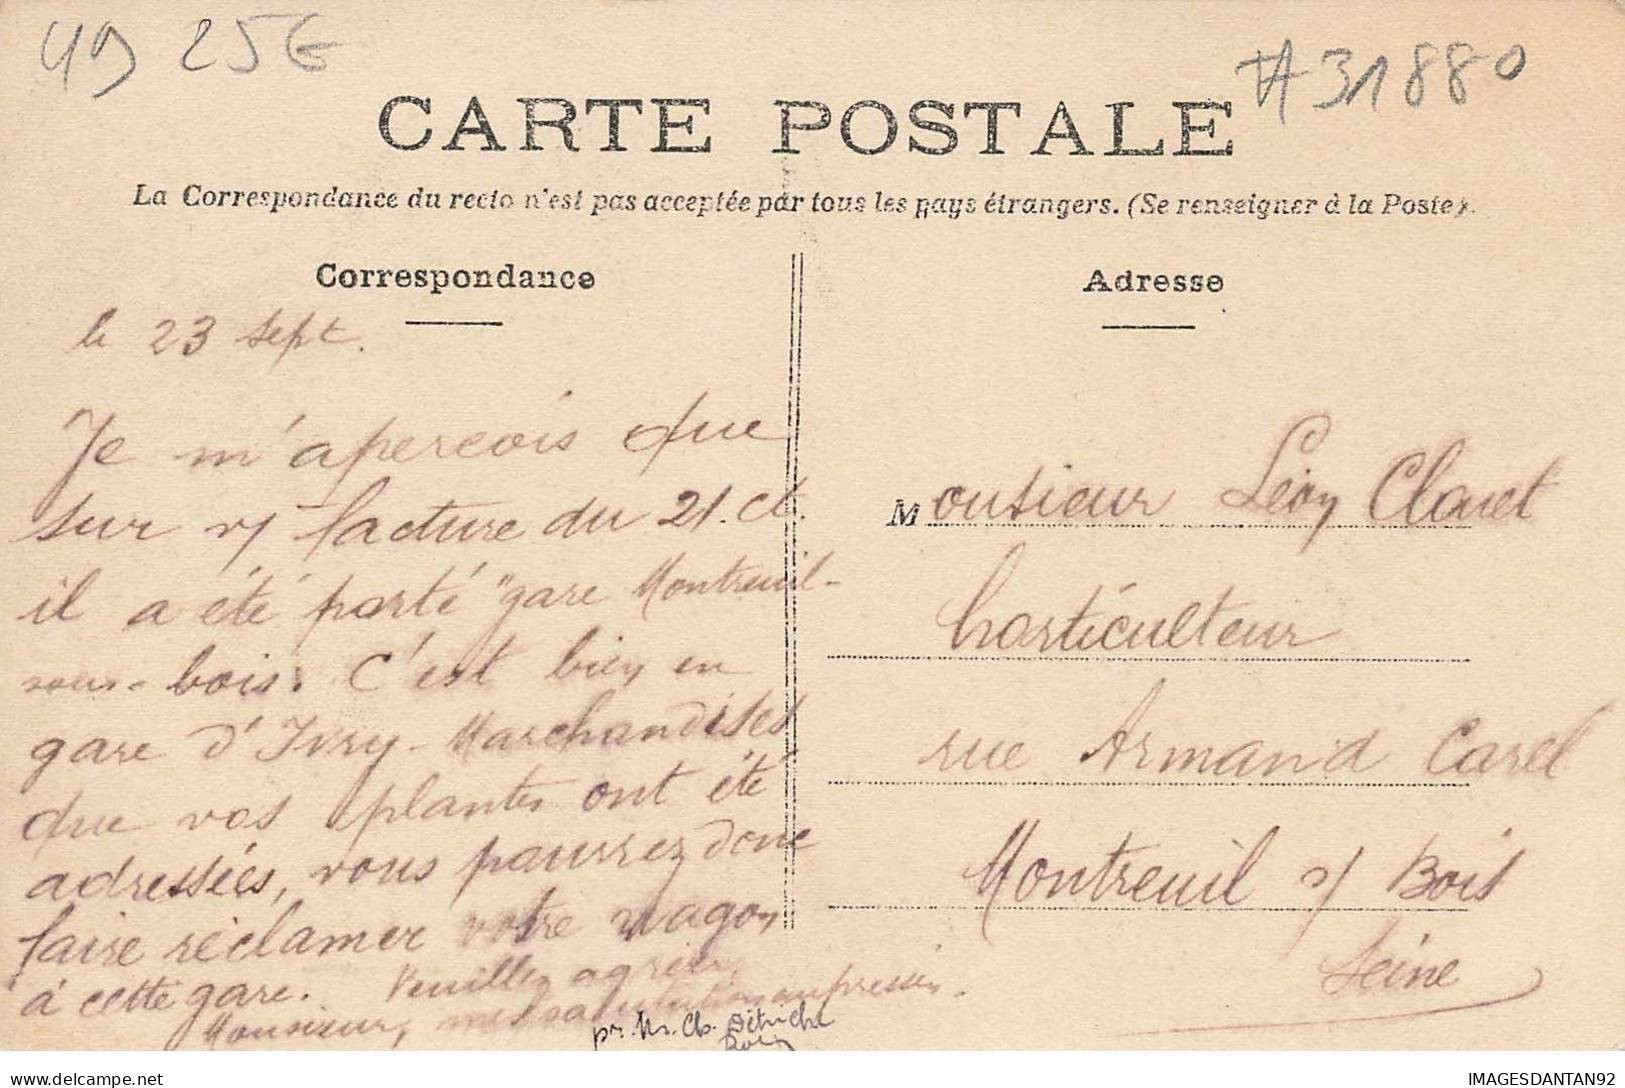 49 25€
#31880
CARTE POSTALE
La Correspondance du recto n'est pas acceptée par tous les pays étrangers. (Se renseigner à la Poste).
Correspondance
le 23 sept.
Je m'apercois que
sur n/ facture du 21. ct.
il a été porté "gare Montreuil-
sous-bois. C'est bien en
gare d'Ivry-Marchandises
que vos plantes ont été
adressées, vous pourrez donc
faire réclamer votre wagon
à cette gare. Veuillez agréer,
Monsieur, mes salutations empressées.
pr. M. Ch. Détriché
Adresse
Monsieur Léon Clauet
horticulteur
rue Armand Carel
Montreuil s/ Bois
Seine
delcampe.net
IMAGESDANTAN92